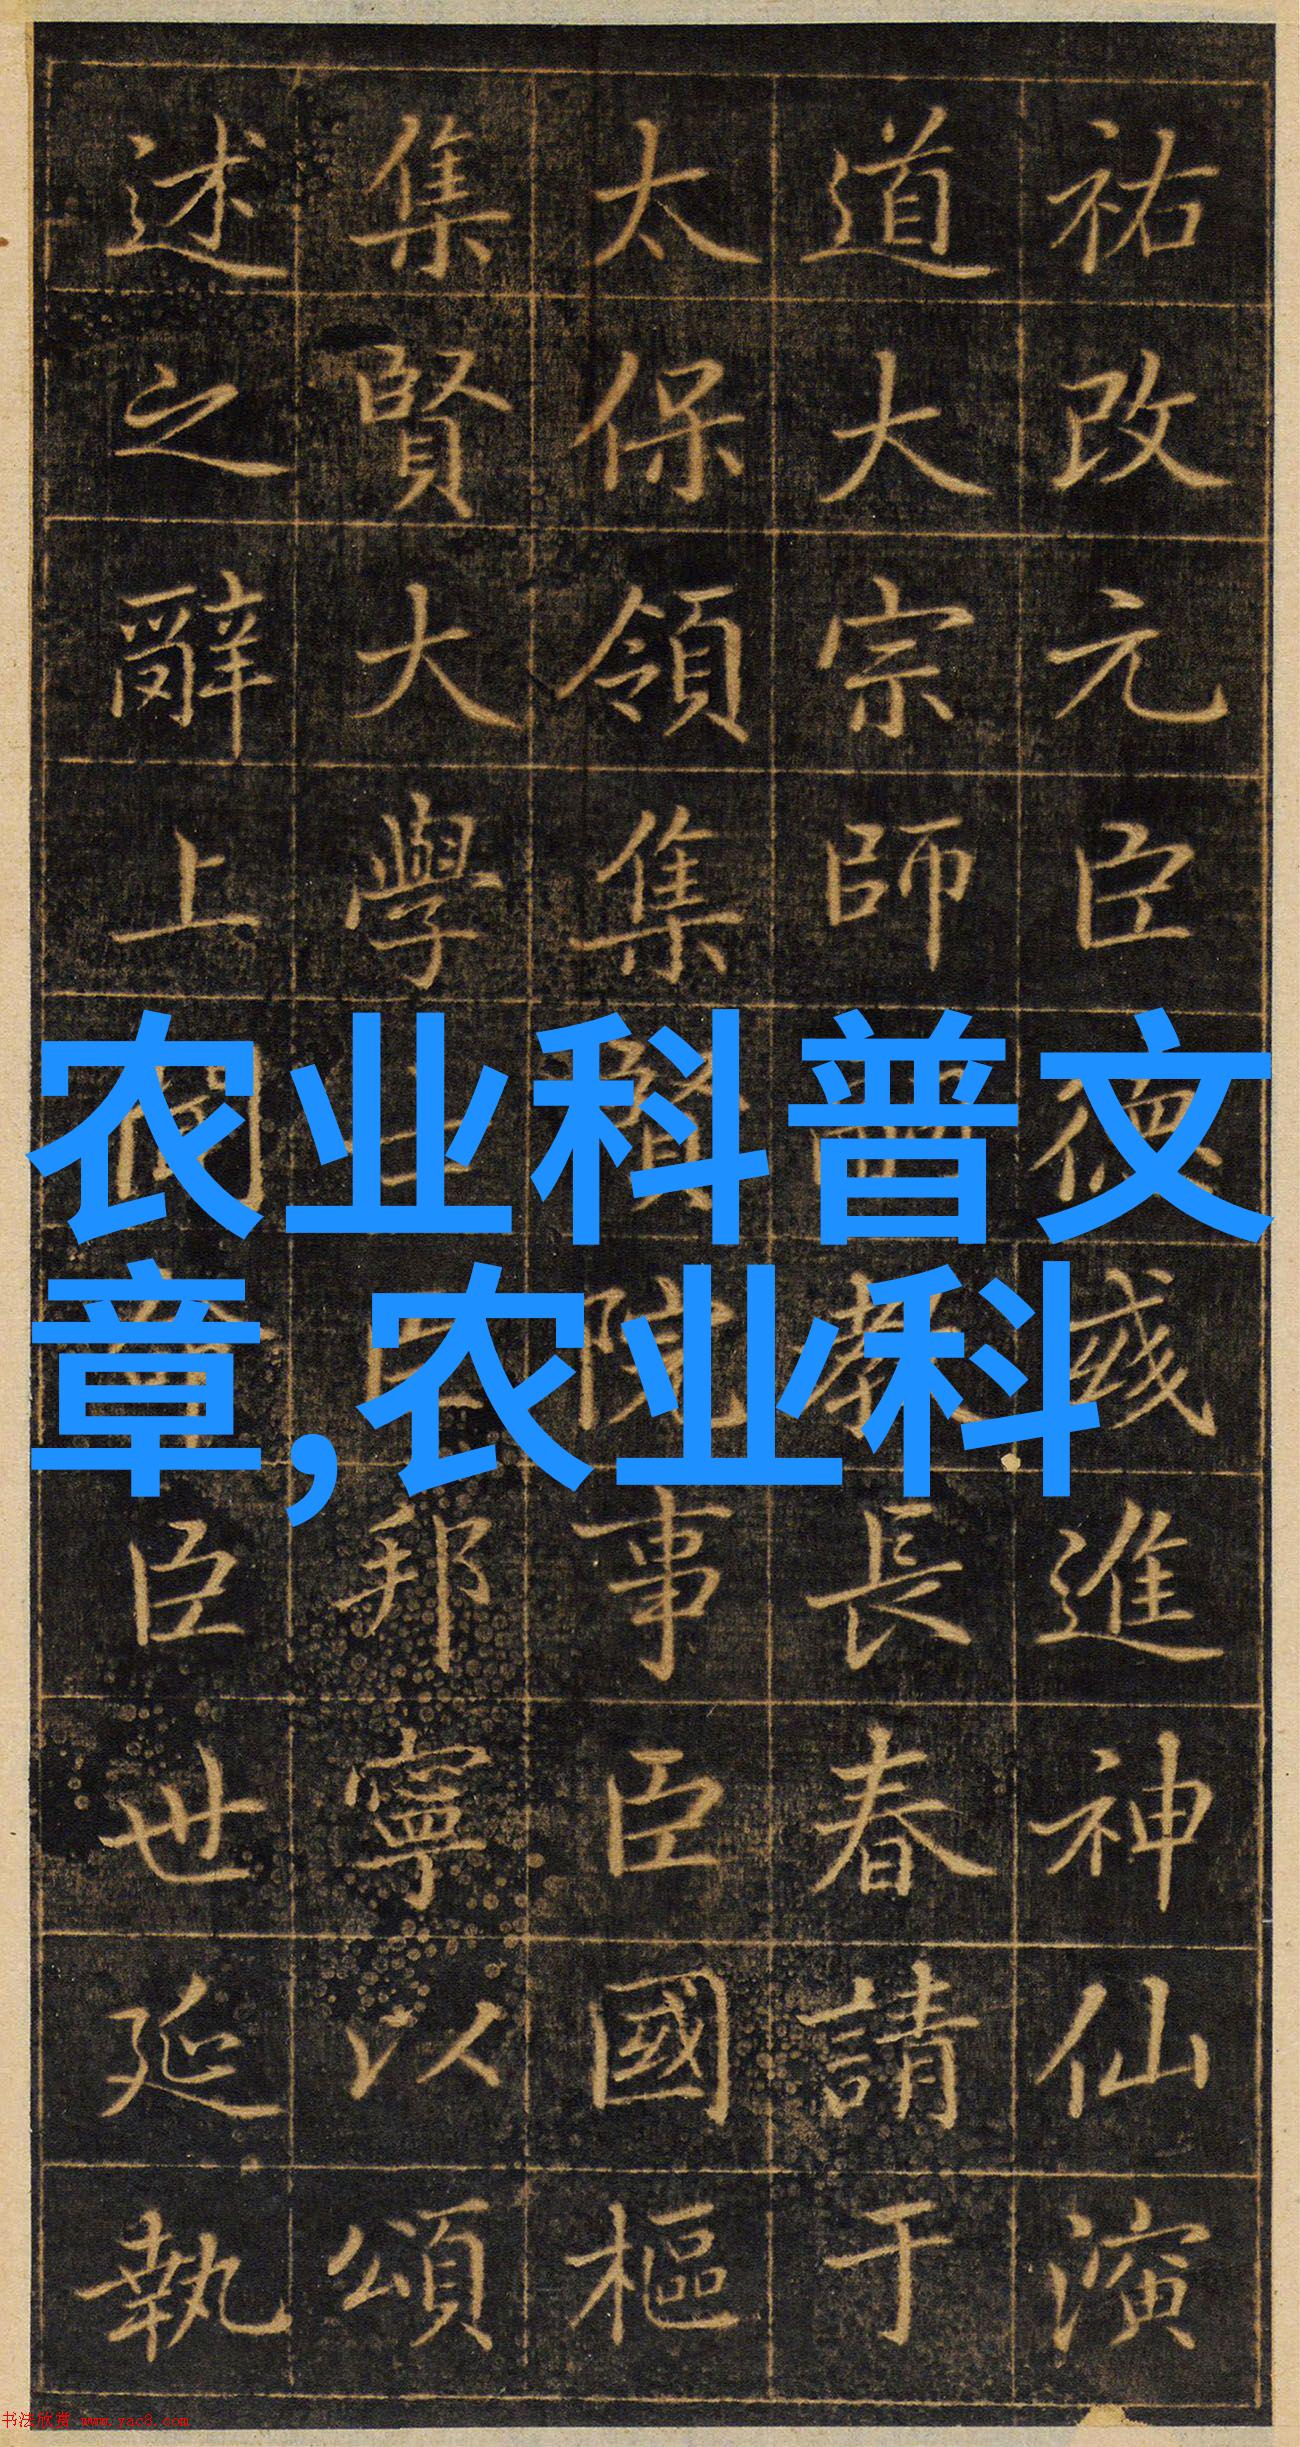 祐改元臣德彧進神仙演
道大宗師教長春請于
太保領集賢院事臣國樞
集賢大學士臣邦寧以頌
述之辭上聞臣世延執
农业科普文
章,农业科
书法欣赏 www.yac8.com